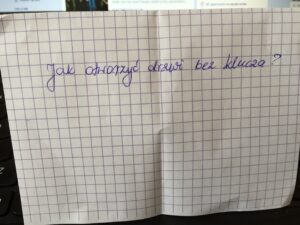 Jak otworzyć drzwi bez klucza?